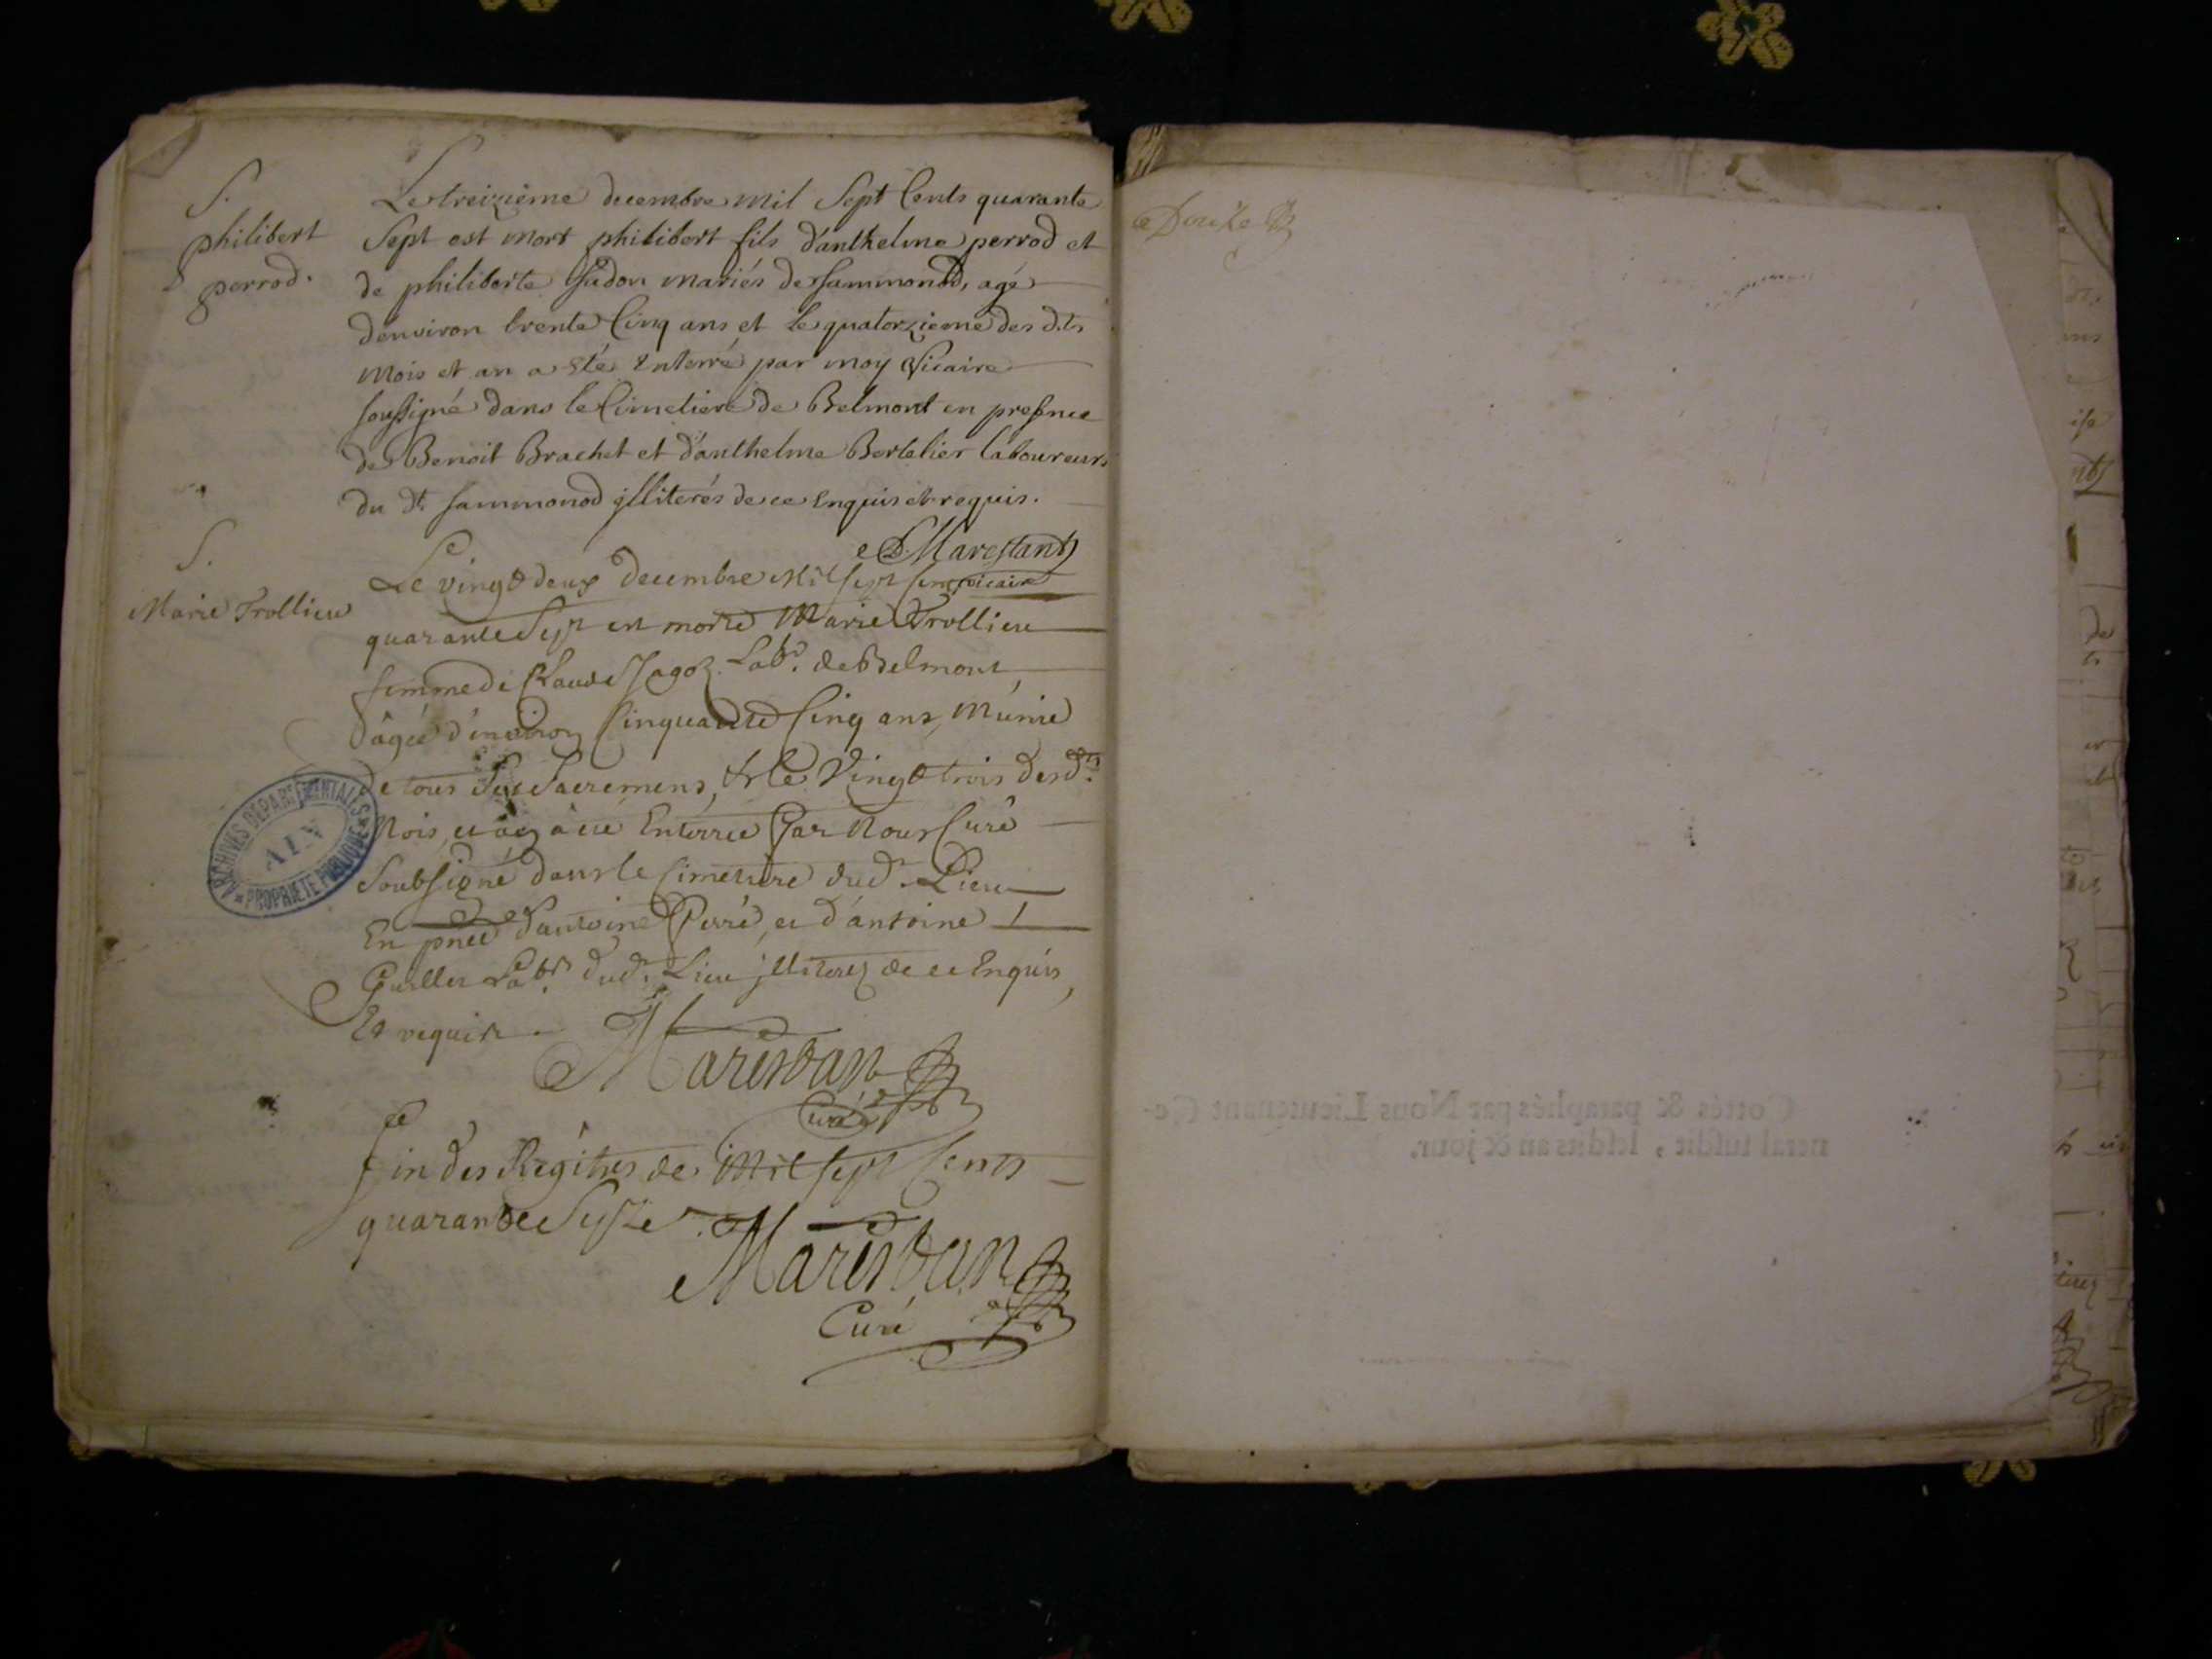 S.
philibert
perrod.
Le treizième decembre mil Sept Cents quarante
Sept est mort philibert fils d'anthelme perrod et
de philiberte Judon mariés de Sammonod, agé
d'environ trente Cinq ans et le quatorzieme des dits
mois et an a eté enterré par moy Vicaire
soussigné dans le Cimetiere de Belmont en presence
de Benoit Brachet et d'anthelme Bertelier laboureurs
du dt. Sammonod illiterés de ce enquis et requis.
D. Marestant
vicaire
S.
Marie Trollieu
Le vingt deux decembre Mil sept cent
quarante Sept est morte Marie Trollieu
femme de Claude Jagoz Labr. de Belmont,
âgée d'environ Cinquante Cinq ans, munie
de tous Ses Sacremens, & le Vingt trois desdts.
Mois, et an a été Enterrée Par Nous Curé
Soubsigné dans le Cimetiere dud. Lieu
En pnce d'antoine Perré, et d'antoine
Guillet Labrs. dud. Lieu illiterez de ce Enquis,
Et requis.
Marestan
Curé
fin des Régitres de Mil sept Cents
quarante Sept
Marestan
Curé
ARCHIVES DÉPARTEMENTALES
AIN
PROPRIÉTÉ PUBLIQUE
Douze
Cottés & paraphés par Nous Lieutenant Ge-
neral susdit, lesdits an & jour.